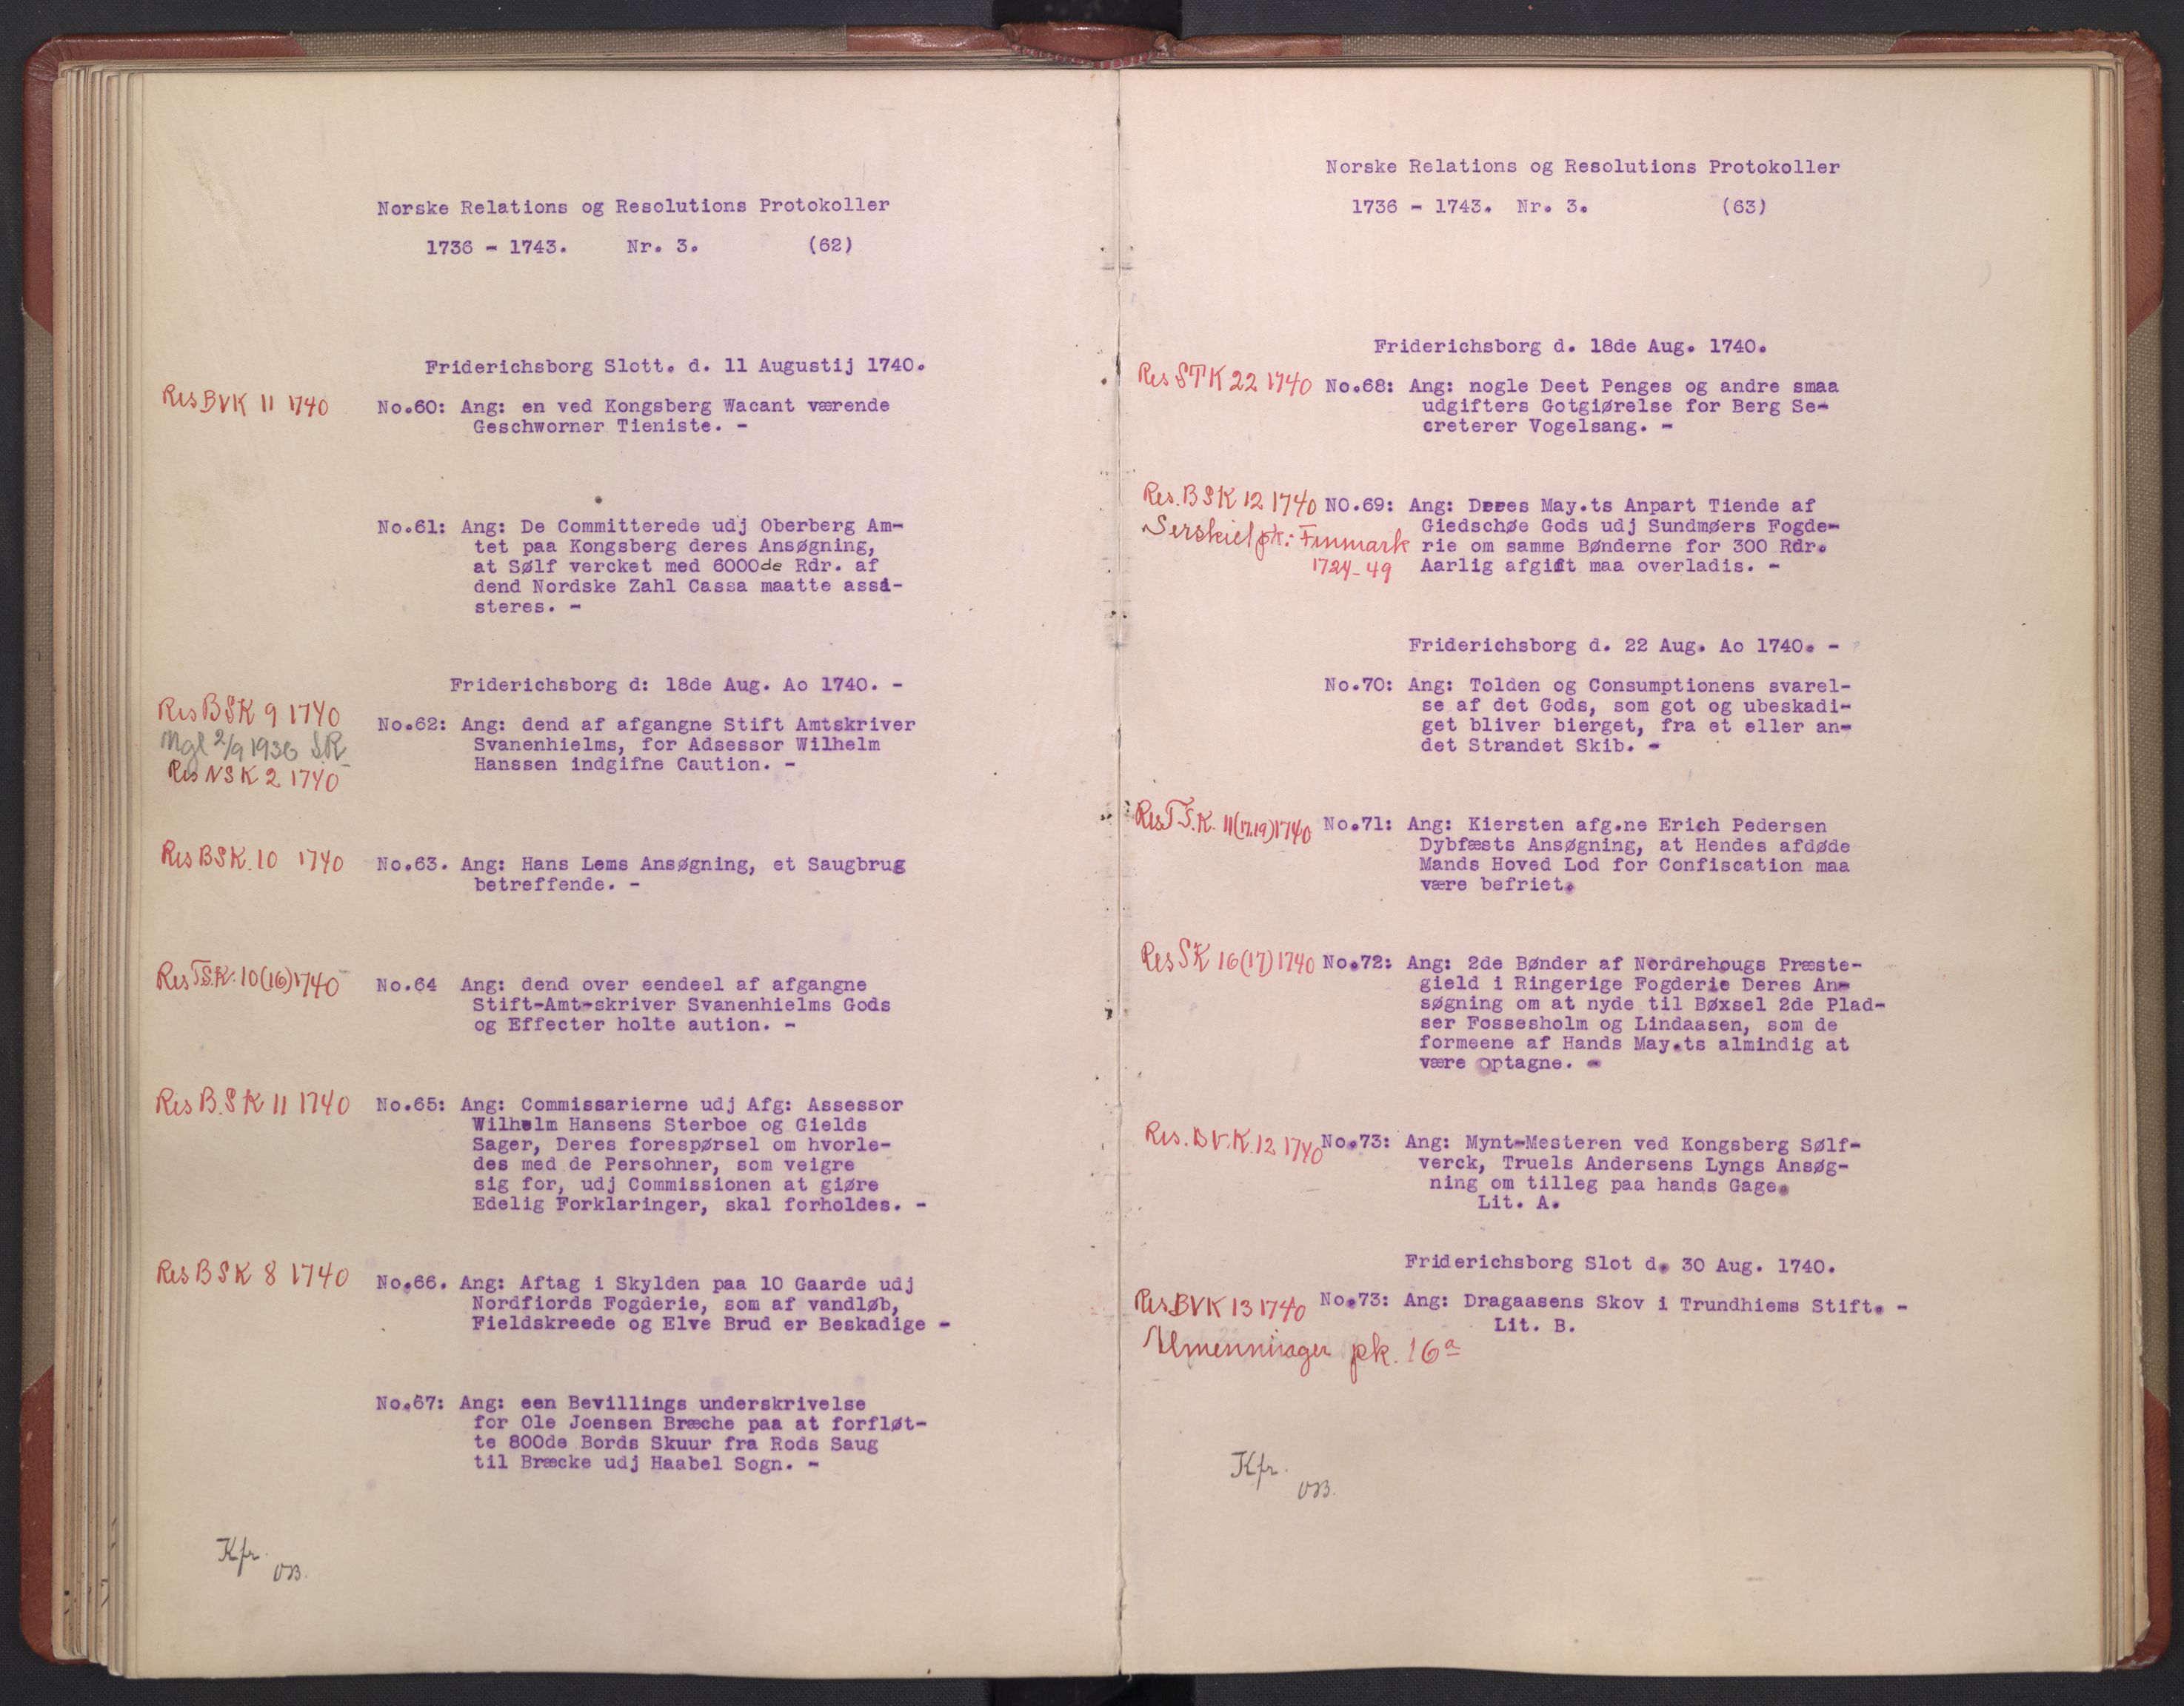 Norske Relations og Resolutions Protokoller
1736 - 1743. Nr. 3. (62)
Friderichsborg Slott. d. 11 Augustij 1740.
Res BVK 11 1740
No.60: Ang: en ved Kongsberg Wacant værende
Geschworner Tieniste. -
No.61: Ang: De Committerede udj Oberberg Am-
tet paa Kongsberg deres Ansøgning,
at Sølf vercket med 6000de Rdr. af
dend Nordske Zahl Cassa maatte assi-
steres. -
Friderichsborg d: 18de Aug. Ao 1740. -
Res BSK 9 1740
Mgl 2/9 1936 SR
Res NSK 2 1740
No.62: Ang: dend af afgangne Stift Amtskriver
Svanenhielms, for Adsessor Wilhelm
Hanssen indgifne Caution. -
Res BSK. 10 1740
No.63. Ang: Hans Lems Ansøgning, et Saugbrug
betreffende. -
Res T.S.K. 10(16) 1740
No.64 Ang: dend over eendeel af afgangne
Stift-Amt-skriver Svanenhielms Gods
og Effecter holte aution. -
Res B.SK 11 1740
No.65: Ang: Commissarierne udj Afg: Assessor
Wilhelm Hansens Sterboe og Gields
Sager, Deres forespørsel om hvorle-
des med de Persohner, som veigre
sig for, udj Commissionen at giøre
Edelig Forklaringer, skal forholdes. -
Res BSK 8 1740
No.66. Ang: Aftag i Skylden paa 10 Gaarde udj
Nordfiords Fogderie, som af vandløb,
Fieldskreede og Elve Brud er Beskadige -
No.67: Ang: een Bevillings underskrivelse
for Ole Joensen Bræche paa at forfløt-
te 800de Bords Skuur fra Rods Saug
til Bræcke udj Haabel Sogn. -
Kfr.
OB.
Norske Relations og Resolutions Protokoller
1736 - 1743. Nr. 3. (63)
Friderichsborg d. 18de Aug. 1740.
Res STK 22 1740
No.68: Ang: nogle Deet Penges og andre smaa
udgifters Gotgiørelse for Berg Se-
creterer Vogelsang. -
Res. BSK 12 1740
Serskiel pk: Finmark
1724-49
NO.69: Ang: Deres May.ts Anpart Tiende af
Giedschøe Gods udj Sundmøers Fogde-
rie om samme Bønderne for 300 Rdr.
Aarlig afgift maa overladis. -
Friderichsborg d. 22 Aug. Ao 1740. -
No.70: Ang: Tolden og Consumptionens svarel-
se af det Gods, som got og ubeskadi-
get bliver bierget, fra et eller an-
det Strandet Skib. -
Res T.S.K. 11(17.19) 1740
No.71: Ang: Kiersten afg.ne Erich Pedersen
Dybfæsts Ansøgning, at Hendes afdøde
Mands Hoved Lod for Confiscation maa
være befriet.
Res SK 16(17) 1740
No.72: Ang: 2de Bønder af Nordrehougs Præste-
gield i Ringerige Fogderie Deres An-
søgning om at nyde til Bøxsel 2de Plad-
ser Fossesholm og Lindaasen, som de
formeene af Hands May.ts almindig at
være optagne. -
Res. B.V.K. 12 1740
No.73: Ang: Mynt-Mesteren ved Kongsberg Sølf-
verck, Truels Andersens Lyngs Ansøg-
ning om tilleg paa hands Gage.
Lit. A.
Friderichsborg Slot d. 30 Aug. 1740.
Res. BVK 13 1740
Almenninger pk. 16a
No.73: Ang: Dragaasens Skov i Trundhiems Stift. -
Lit. B.
Kfr.
OB.